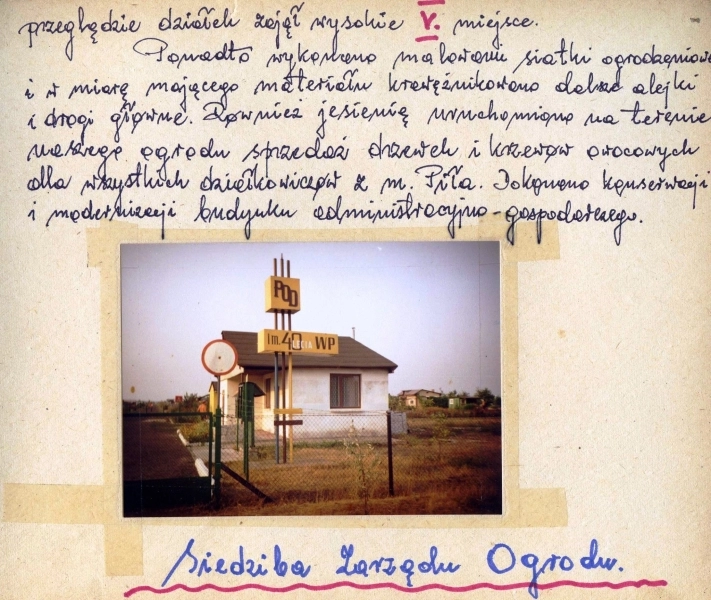 przeglądzie działek zajął wysokie V. miejsce.
Ponadto wykonano malowanie siatki ogrodzeniowej
i w miarę mającego materiału krawężnikowano dalsze alejki
i drogi główne. Również jesienią uruchomiono na terenie
naszego ogrodu sprzedaż drzewek i krzewów owocowych
dla wszystkich działkowiczów z m. Piła. Dokonano konserwacji
i modernizacji budynku administracyjno-gospodarczego.
POD
im. 40 LECIA WP
Siedziba Zarządu Ogrodu.